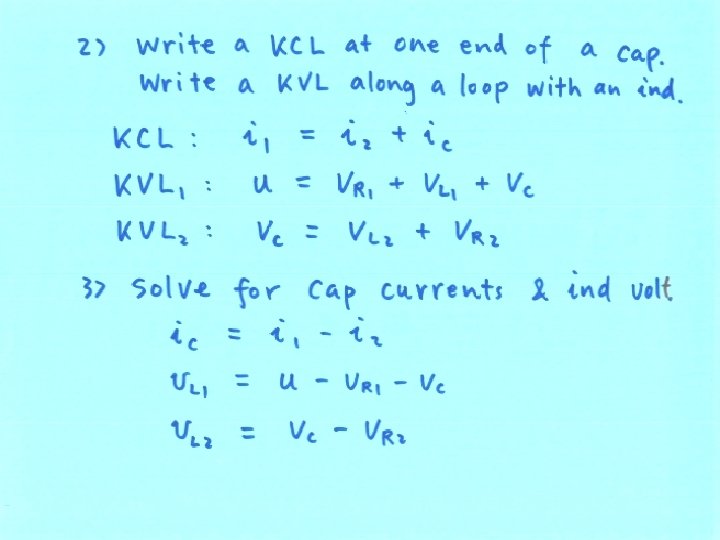 2) Write a KCL at one end of a cap.
Write a KVL along a loop with an ind.
KCL : i₁ = i₂ + i꜀
KVL₁ : u = V_R₁ + V_L₁ + V_c
KVL₂ : V_c = V_L₂ + V_R₂
3) Solve for cap currents & ind volt
i_c = i₁ - i₂
V_L₁ = u - V_R₁ - V_c
V_L₂ = V_c - V_R₂